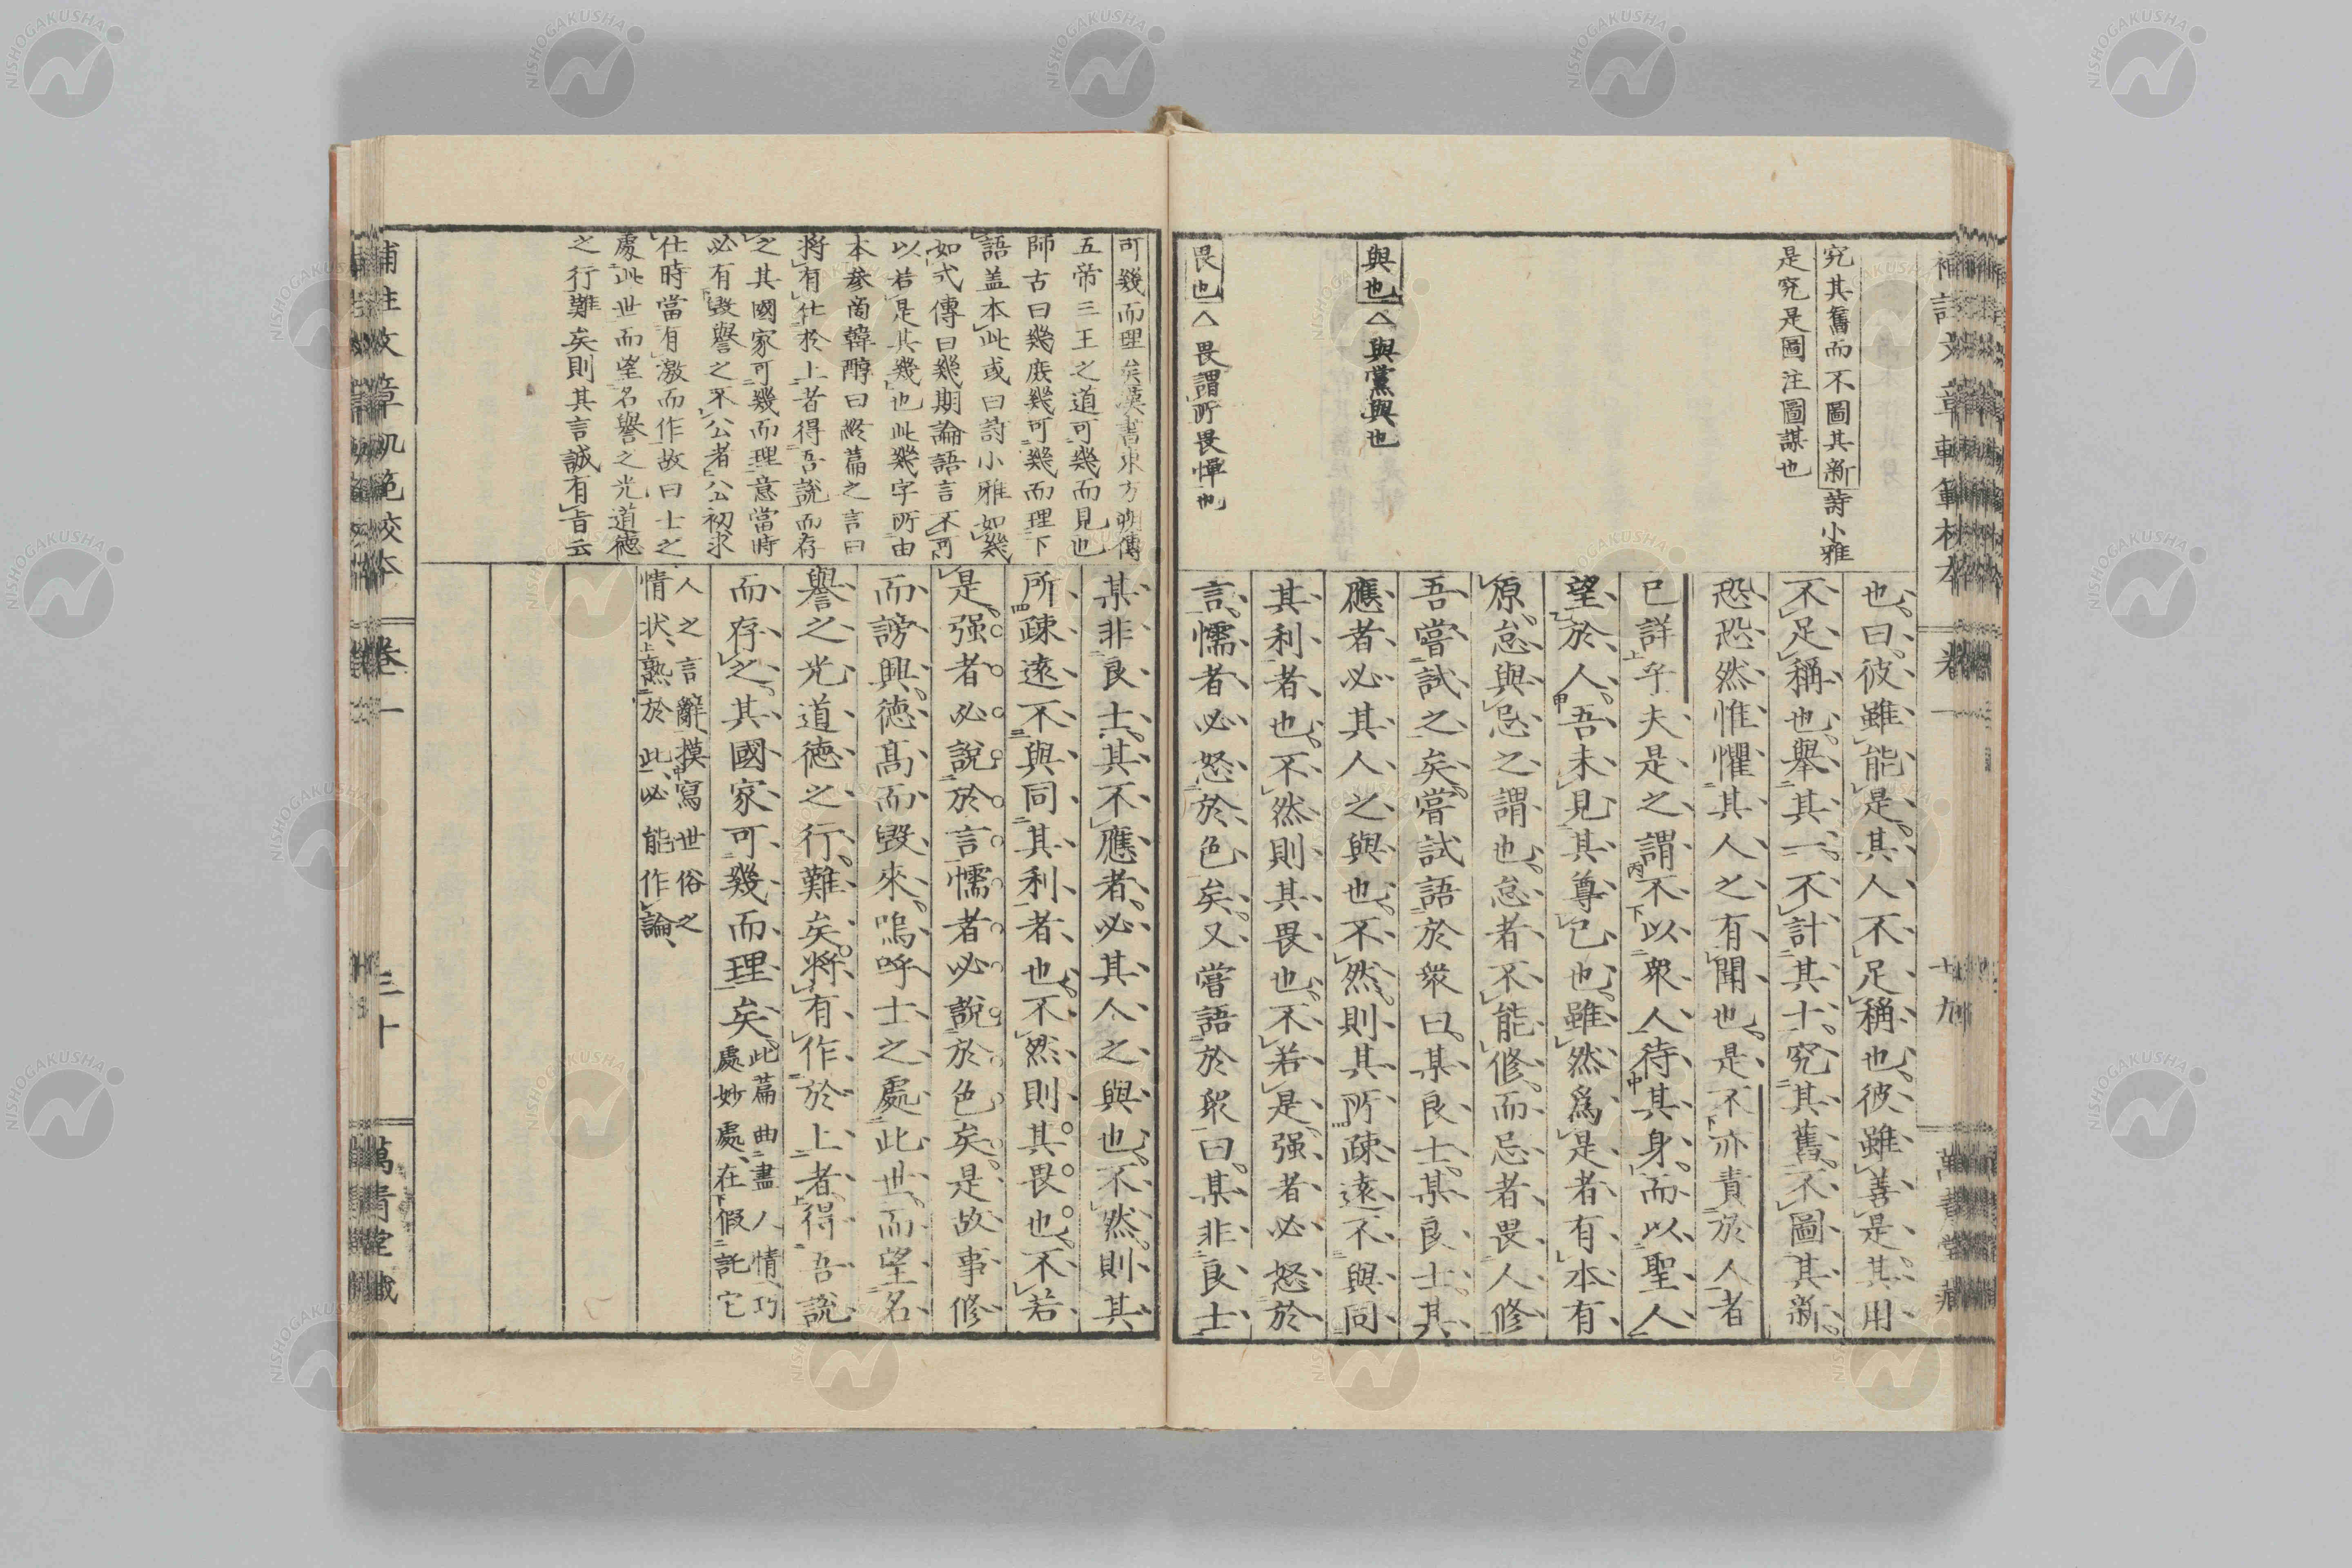 究其舊而不圖其新詩小雅
是究是圖注圖謀也
與也△與黨與也
畏也△畏謂所畏憚也
也曰彼雖能是其人不足稱也彼雖善是其用
不足稱也舉其一不計其十究其舊不圖其新
恐恐然惟懼其人之有聞也是不亦責於人者
已詳乎夫是之謂不以衆人待其身而以聖人
望於人吾未見其尊己也雖然爲是者有本有
原怠與忌之謂也怠者不能修而忌者畏人修
吾嘗試之矣嘗試語於衆曰某良士某良士其
應者必其人之與也不然則其所疎遠不與同
其利者也不然則其畏也不若是强者必怒於
言懦者必怒於色矣又嘗語於衆曰某非良士
卷一
十九
可幾而理矣漢書東方朔傳
五帝三王之道可幾而見也
師古曰幾庶幾可幾而理下
語盖本此或曰詩小雅如幾
如式傳曰幾期論語言不可
以若是其幾也此幾字所由
本參啇韓醇曰終篇之言曰
將有仕於上者得吾說而存
之其國家可幾而理意當時
必有毀譽之不公者公初求
仕時當有激而作故曰士之
處此世而望名譽之光道德
之行難矣則其言誠有旨云
某非良士其不應者必其人之與也不然則其
所疎遠不與同其利者也不然則其畏也不若
是强者必說於言懦者必說於色矣是故事修
而謗興德高而毀來嗚呼士之處此世而望名
譽之光道德之行難矣將有作於上者得吾說
而存之其國家可幾而理矣此篇曲盡人情巧
處妙處在假託它
人之言辭摸寫世俗之
情状熟於此必能作論
卷一
三十